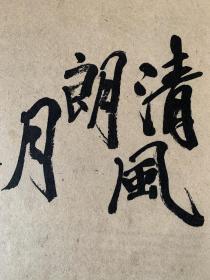 清風
朗
月